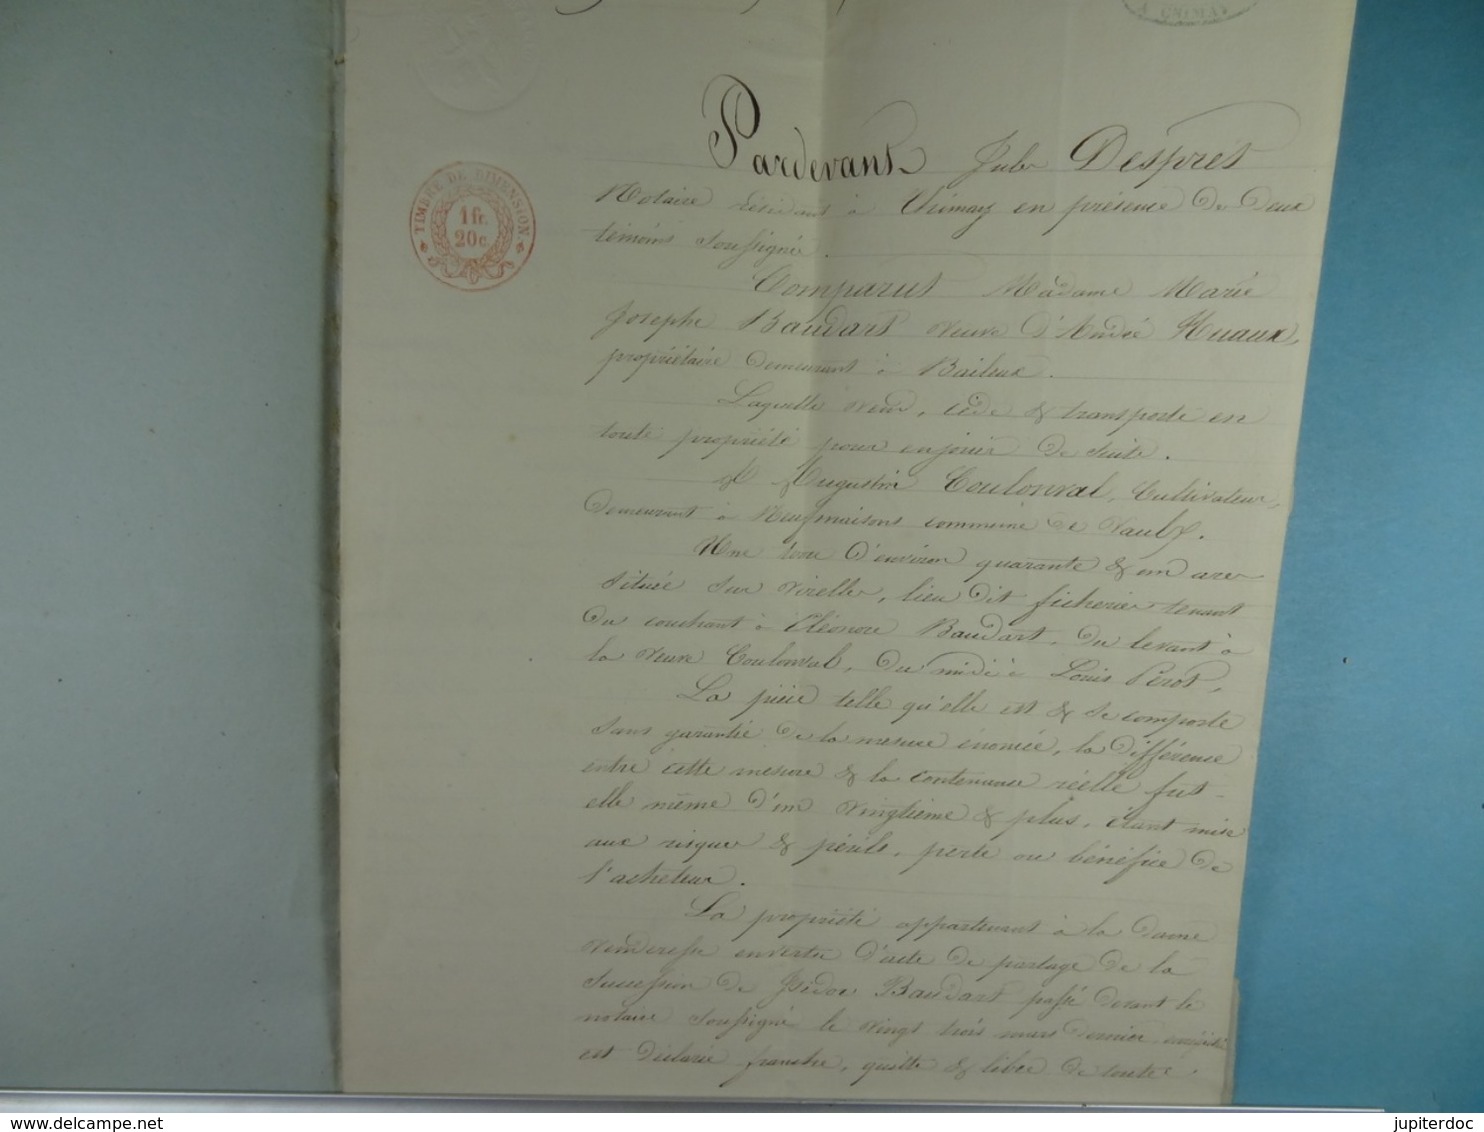 A CHIMAY
TIMBRE DE DIMENSION
1 fr.
20 c.
Pardevant Jules Despret
Notaire résidant à Chimay en présence de deux
témoins soussignés.
Comparut Madame Marie
Josephe Baudart veuve d'André Huaux,
propriétaire demeurant à Baileux.
Laquelle vend, cède & transporte en
toute propriété pour en jouir de suite.
A Augustin Coulonval, Cultivateur,
demeurant à Neufmaisons commune de Vaulx.
Une terre d'environ quarante & un ares
située sur Virelles, lieu dit ficheries tenant
du couchant à Eléonore Baudart, du levant à
la veuve Coulonval, du midi à Louis Pérot,
La pièce telle qu'elle est & se comporte
sans garantie de la mesure énoncée, la différence
entre cette mesure & la contenance réelle fut-
elle même d'un vingtième & plus, étant mise
aux risques & périls, perte ou bénéfice de
l'acheteur.
La propriété appartenant à la dame
venderesse en vertu d'acte de partage de la
succession de Isidore Baudart passé devant le
notaire soussigné le vingt trois mars dernier enregistré
est déclarée franche, quitte & libre de toutes
jupiterdoc